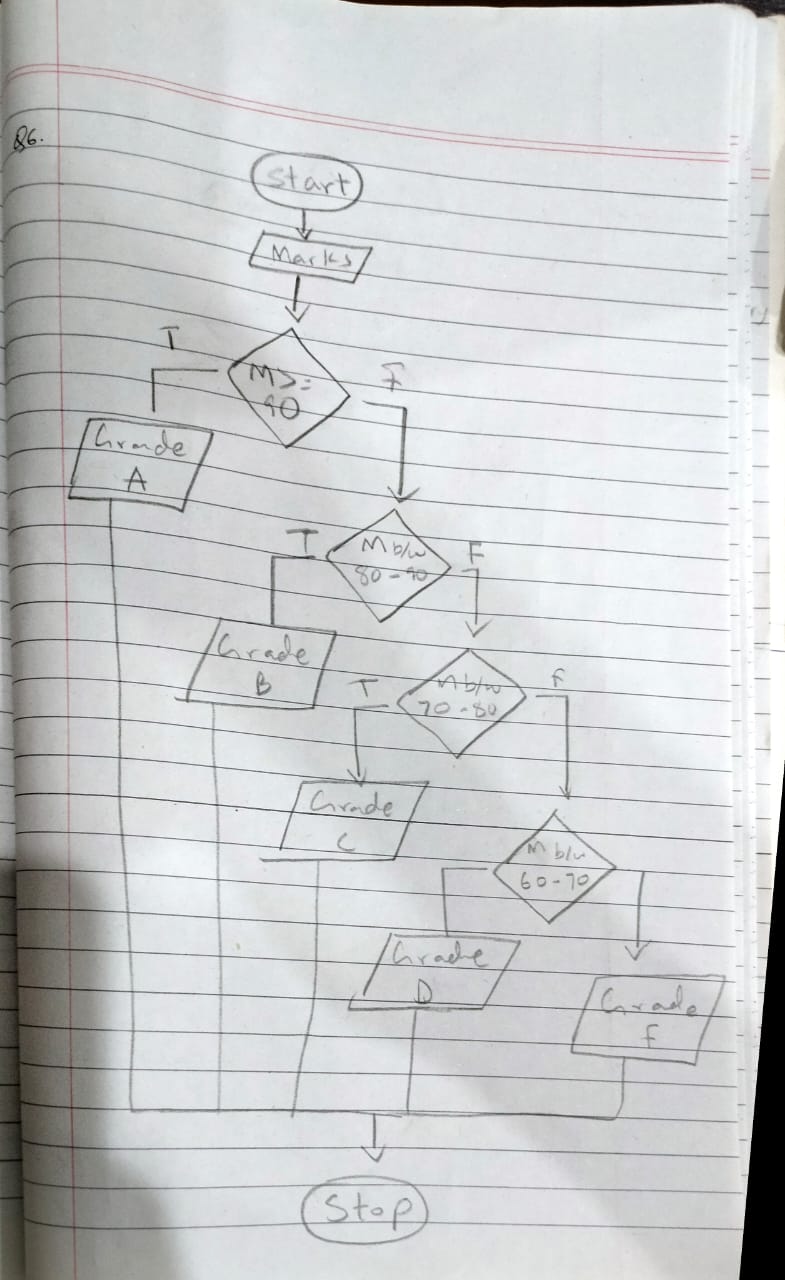 Q6.
Start
Marks
T
M>=
90
F
Grade
A
T
M b/w
80-90
F
Grade
B
T
M b/w
70-80
F
Grade
C
M b/w
60-70
Grade
D
Grade
F
Stop